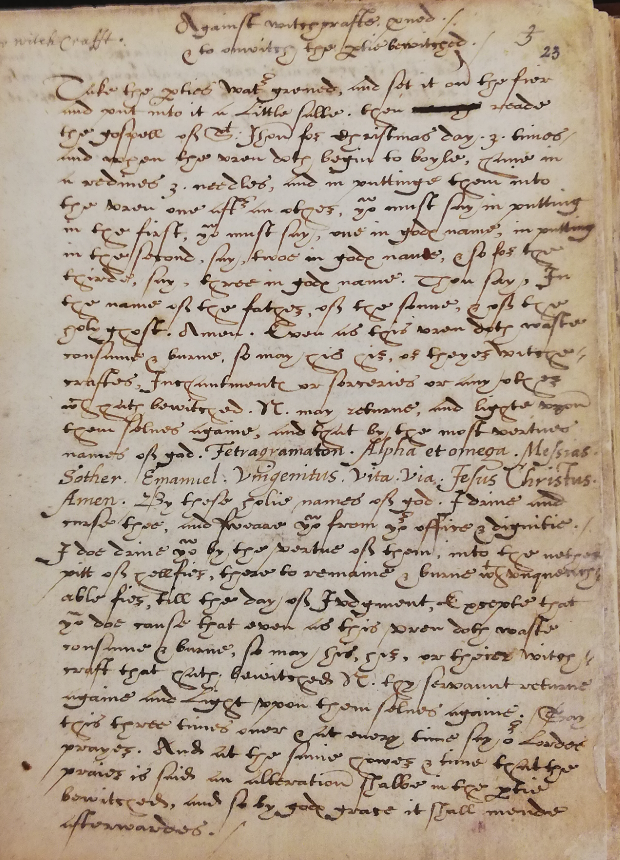 Against witchcrafts prued ./.
& to onwitch the ptie bewitched.
witchcrafft.
3
23
Take the pties watr grened, and set it on the fier
and put into it a Little salte. then reade
the gospell off St. Jhon for Christmas day. 3. times
and when the vren doth begin to boyle, haue in
a redines 3. needles, and in puttinge them into
the vren one aftr an other, yu must say in putting
in the first, yu must say, one in gods name, in putting
in the second, say, twoe in gods name, & so for the
thirde, say, three in gods name. Then say, In
the name off the father, off the sunne, & off the
holy ghost. Amen. Even as this vren doth waste
consume & burne, so may his hir, or theyer witche-
craftes, Inchantments or sorceries or any other
wch hath bewitched .N. may returne, and lighte vpon
them selues againe, and that by the most vertues
names off god. Tetragramaton. Alpha et omega. Messias.
Sother. Emanuel. Vnigenitus. Vita. Via. Jesus Christus.
Amen. By these holie names off god. I driue and
curse thee, and sweare you from yor office & dignitie. /
I doe driue you by the vertue off them, into the nether
pitt off hellfier, there to remaine & burne wt vnquench
able fier, till the day off Judgment, Excepte that
you doe cause that even as this vren doth waste
consume & burne, so may his, hir, or theires witch-
craft that hath bewitched N. thy servaunt returne
againe and Light vppon them selues againe. Say
this three times over & at every time say ye Lordes
prayer. And at the same hower & time that the
praier is said an alteration shalbe in the ptie
bewitched, and so by gods grace it shall mende
afterwardes. /